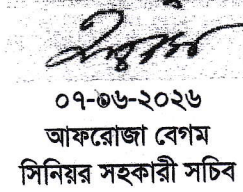 ০৭-০৬-২০২৬
আফরোজা বেগম
সিনিয়র সহকারী সচিব